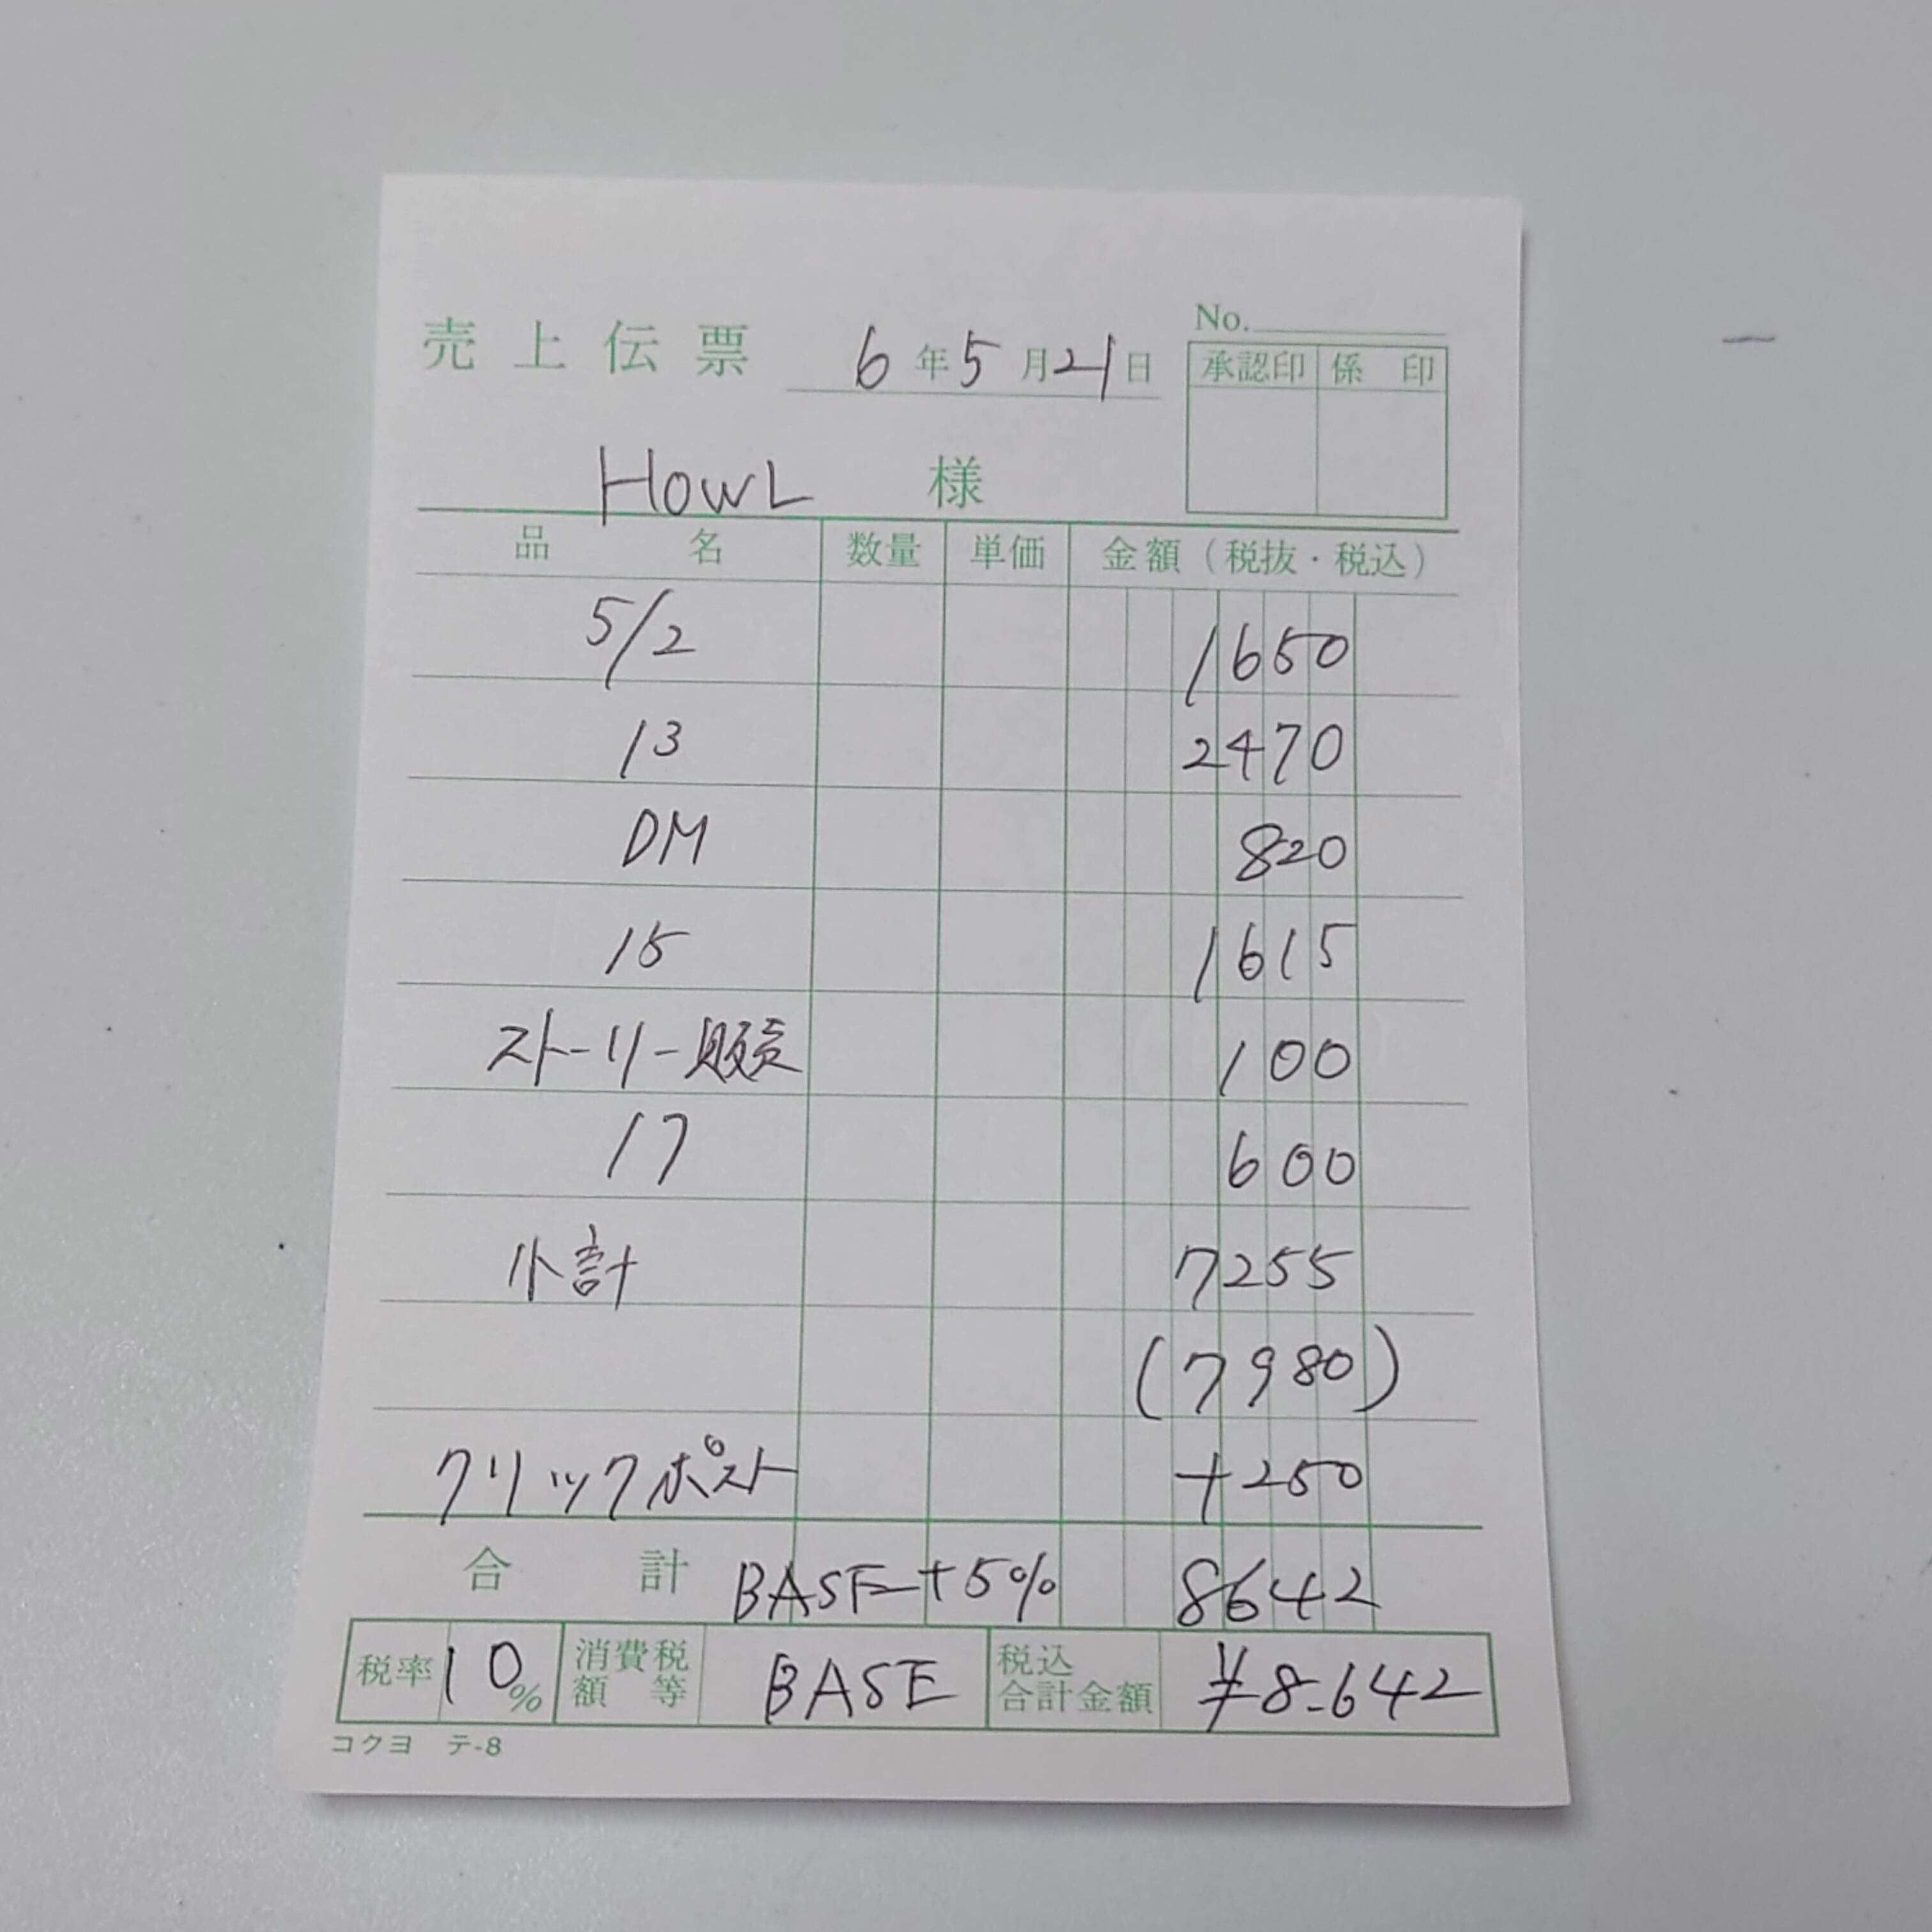 No.
売上伝票 6年5月21日
承認印 係印
HOWL 様
品名 数量 単価 金額（税抜・税込）
5/2 1650
13 2470
DM 820
15 1615
ストーリー販売 100
17 600
小計 7255
(7980)
クリックポスト +250
合計 BASE+5% 8642
税率 10% 消費税額等 BASE 税込合計金額 ¥8-642
コクヨ テ-8